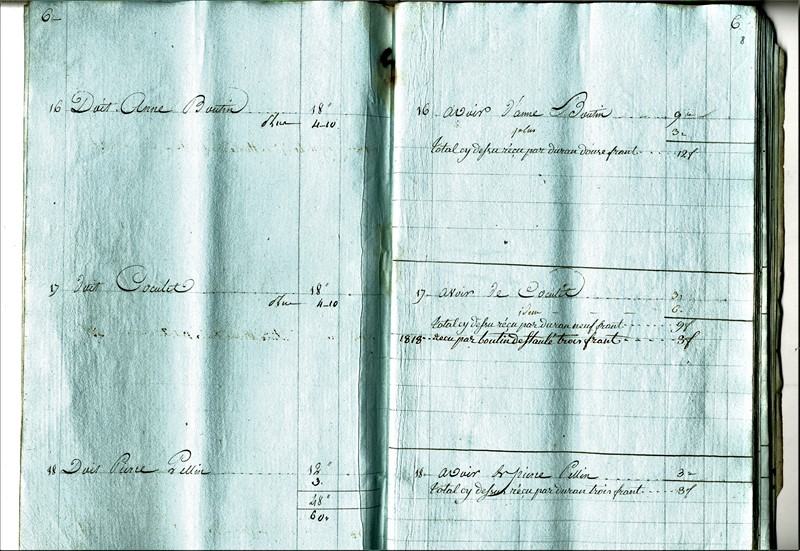 6
16 Doit Anne Boutin 18"
4-10
17 doit Coculet 18"
4-10
18 Doit Pierre Pellin 12"
3
48"
60
6
8
16 avoir d'anne Boutin 9
plus 3
total cy desu réçu par duran douse frant 12f
17 avoir de Coculet 3
6
total cy desu réçu par duran neuf frant 9f
1818 recu par boutin trois frant 3f
18 avoir de pierre Pellin 3
total cy desu réçu par duran trois frant 3f